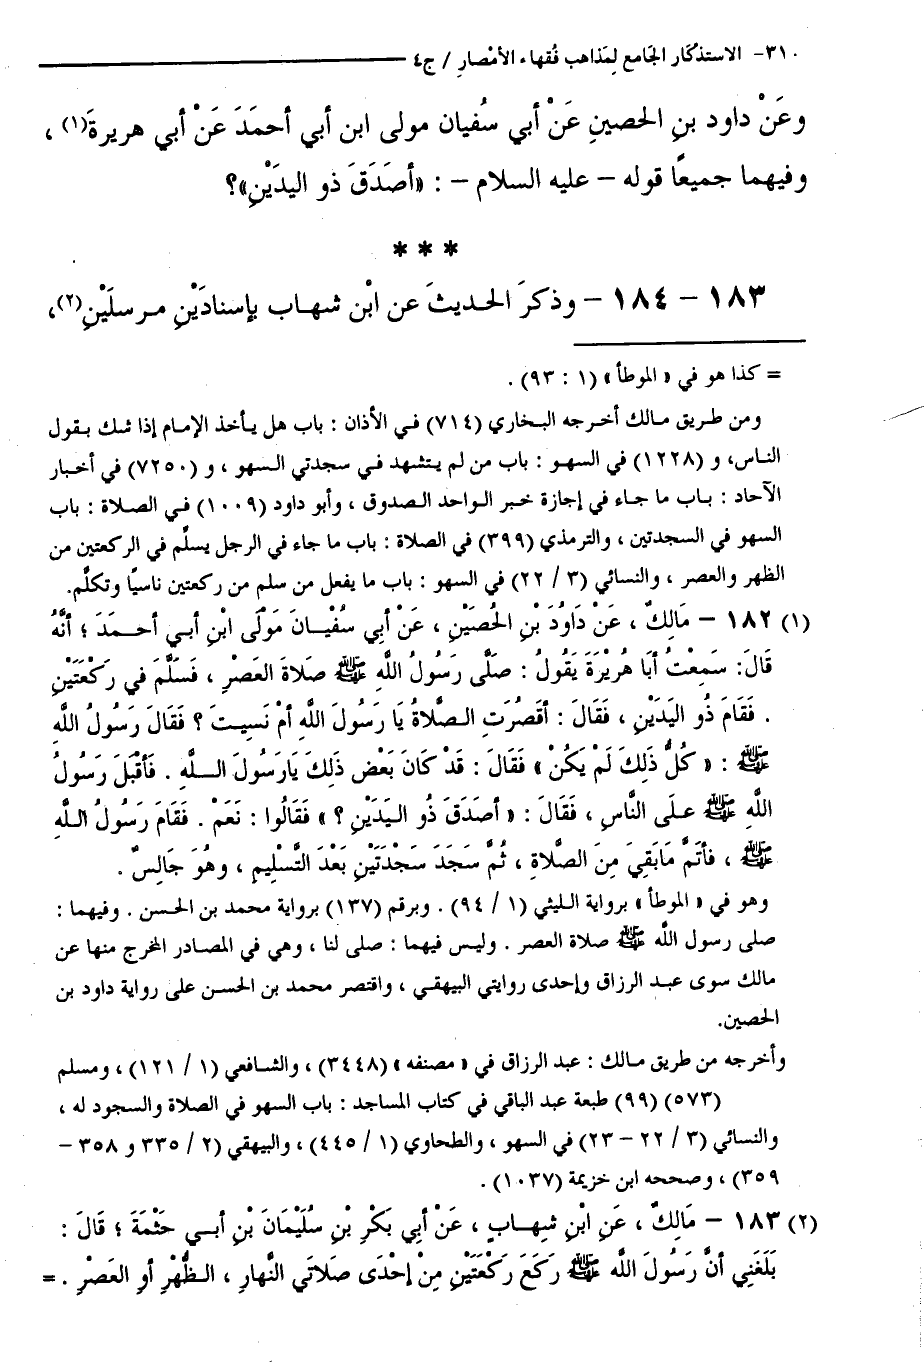 ٣١٠- الاستذكار الجامع لمذاهب فقهاء الأمصار / ج٤
وعَنْ داود بنِ الحصينِ عَنْ أبي سُفيان مولى ابن أبي أحمَدَ عَنْ أبي هريرةَ(١) ،
وفيهما جميعًا قوله – عليه السلام – : «أصَدَقَ ذو اليدَيْنِ»؟
* * *
١٨٣ – ١٨٤ – وذكرَ الحديثَ عن ابْن شهاب بإسنادَيْنِ مرسلَيْنِ(٢)،
= كذا هو في « الموطأ » (١ : ٩٣) .
ومن طريق مالك أخرجه البخاري (٧١٤) في الأذان : باب هل يأخذ الإمام إذا شك بقول
الناس، و (١٢٢٨) في السهو : باب من لم يتشهد في سجدتي السهو ، و (٧٢٥٠) في أخبار
الآحاد : باب ما جاء في إجازة خبر الواحد الصدوق ، وأبو داود (١٠٠٩) في الصلاة : باب
السهو في السجدتين ، والترمذي (٣٩٩) في الصلاة : باب ما جاء في الرجل يسلّم في الركعتين من
الظهر والعصر ، والنسائي (٣ / ٢٢) في السهو : باب ما يفعل من سلم من ركعتين ناسيًا وتكلَّم.
(١) ١٨٢ – مَالِكٌ ، عَنْ دَاوُدَ بْنِ الحُصَيْنِ ، عَنْ أبِي سُفْيَانَ مَوْلَى ابْنِ أبي أحمَدَ ؛ أنَّهُ
قَالَ: سَمِعْتُ أبَا هُرَيْرَةَ يَقُولُ : صَلَّى رَسُولُ اللَّهِ ﷺ صَلاَةَ العَصْرِ ، فَسَلَّمَ في رَكْعَتَيْنِ
. فَقَامَ ذُو اليَدَيْنِ ، فَقَالَ : أقَصُرَتِ الصَّلاةُ يَا رَسُولَ اللَّهِ أمْ نَسِيتَ ؟ فَقَالَ رَسُولُ اللَّهِ
ﷺ : « كُلُّ ذَلِكَ لَمْ يَكُنْ » فَقَالَ : قَدْ كَانَ بَعْض ذَلِكَ يَارَسُولَ اللَّهِ . فَأقْبَلَ رَسُولُ
اللَّهِ ﷺ عَلَى النَّاسِ ، فَقَالَ : « أصَدَقَ ذُو اليَدَيْنِ ؟ » فَقَالُوا : نَعَمْ . فَقَامَ رَسُولُ اللَّهِ
ﷺ ، فأتَمَّ مَابَقِيَ مِنَ الصَّلاةِ ، ثُمَّ سَجَدَ سَجْدَتَيْنِ بَعْدَ التَّسْلِيمِ ، وهُوَ جَالِسٌ .
وهو في « الموطأ » برواية الليثي (١ / ٩٤). وبرقم (١٣٧) برواية محمد بن الحسن . وفيهما :
صلى رسول اللَّه ﷺ صلاة العصر . وليس فيهما : صلى لنا ، وهي في المصادر المخرج منها عن
مالك سوى عبد الرزاق وإحدى روايتي البيهقي ، واقتصر محمد بن الحسن على رواية داود بن
الحصين.
وأخرجه من طريق مالك : عبد الرزاق في « مصنفه » (٣٤٤٨) ، والشافعي (١ / ١٢١) ، ومسلم
(٥٧٣) (٩٩) طبعة عبد الباقي في كتاب المساجد : باب السهو في الصلاة والسجود له ،
والنسائي (٣ / ٢٢ – ٢٣) في السهو ، والطحاوي (١ / ٤٤٥) ، والبيهقي (٢ / ٣٣٥ و ٣٥٨ –
٣٥٩) ، وصححه ابن خزيمة (١٠٣٧) .
(٢) ١٨٣ – مَالِكٌ ، عَنِ ابْنِ شِهابٍ ، عَنْ أبِي بَكْرِ بْنِ سُلَيْمَانَ بْنِ أبي حَثْمَةَ ؛ قَالَ :
بَلَغَنِي أنَّ رَسُولَ اللَّه ﷺ رَكَعَ رَكْعَتَيْنِ مِنْ إحْدَى صَلاتَي النَّهارِ ، الظُّهْرِ أوِ العَصْرِ . =